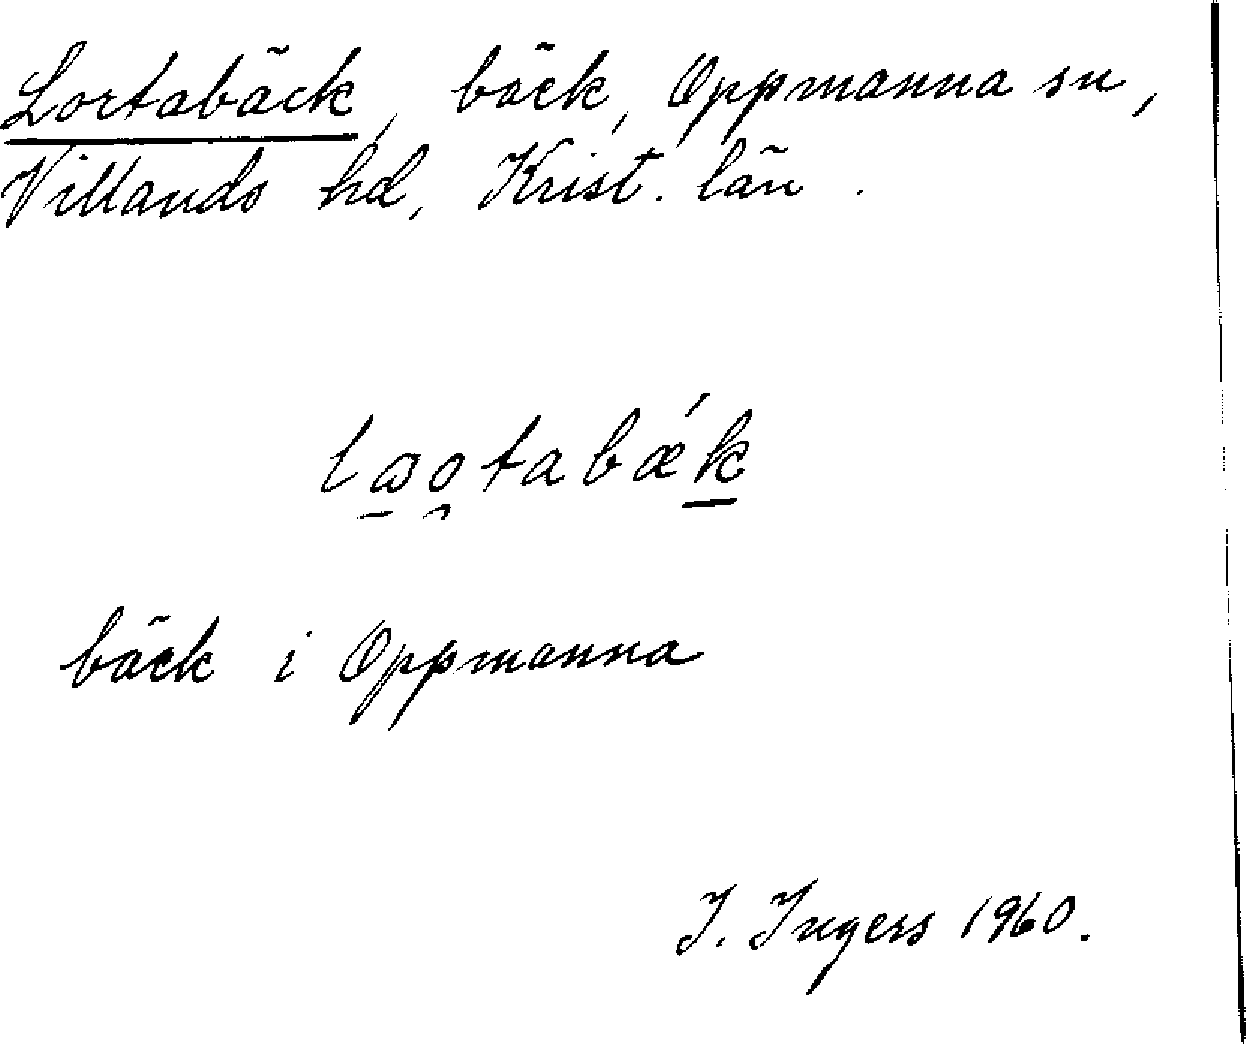 Lortabäck, bäck, Oppmanna sn,
Villands hd, Krist. län.
bäck i Oppmanna
I. Ingers 1960.